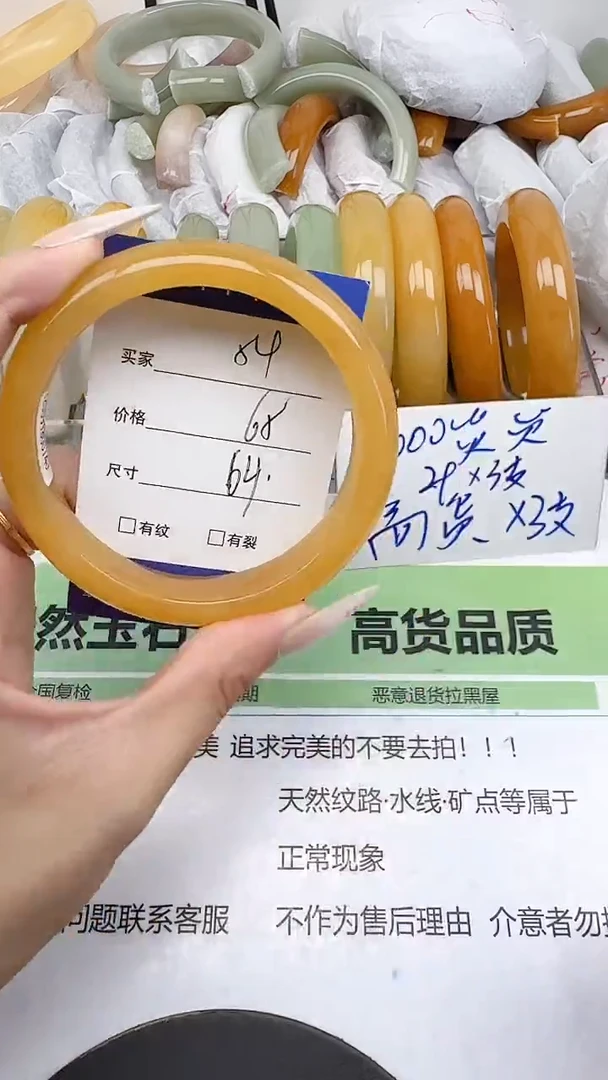 买家 04
价格 68
尺寸 64.
□有纹 □有裂
000
×3支
高货 ×3支
然玉石 高货品质
全国复检 期 恶意退货拉黑屋
美 追求完美的不要去拍！！！
天然纹路·水线·矿点等属于
正常现象
问题联系客服 不作为售后理由 介意者勿